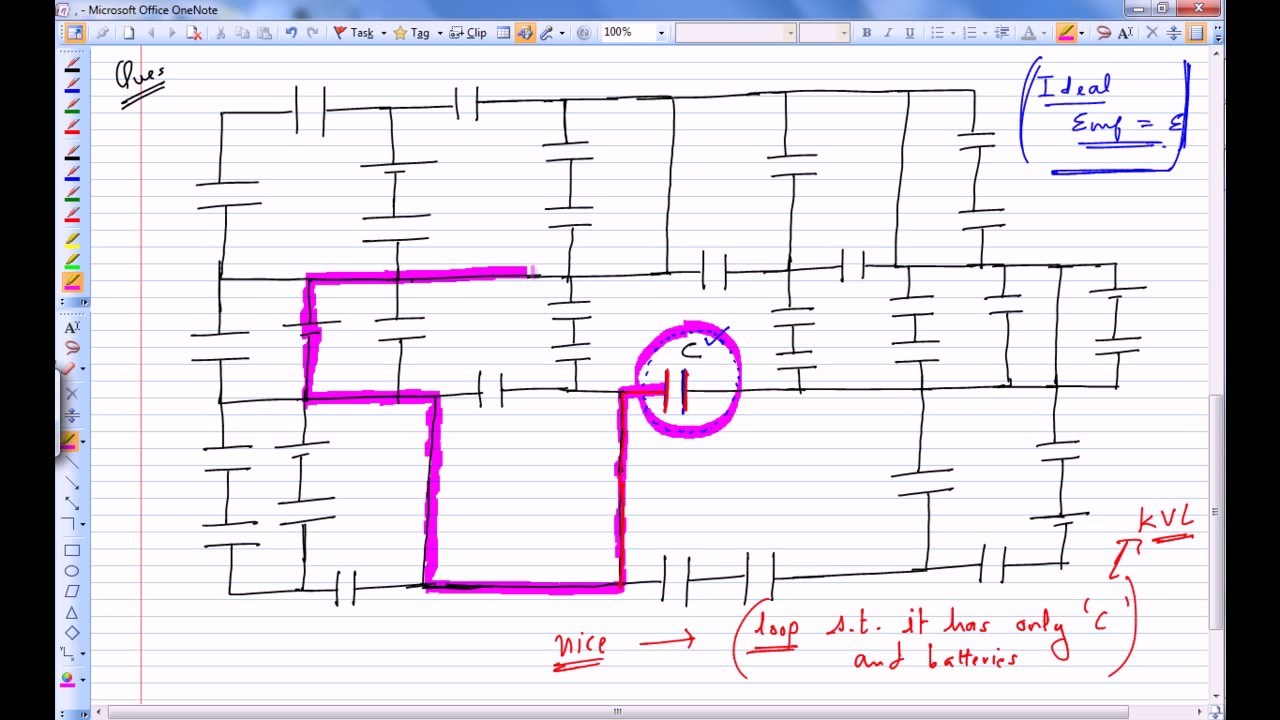 . - Microsoft Office OneNote
Task Tag Clip 100% B I U A A
Ques
Ideal
Emf = ε
C
KVL
nice → (loop s.t. it has only 'C'
and batteries)